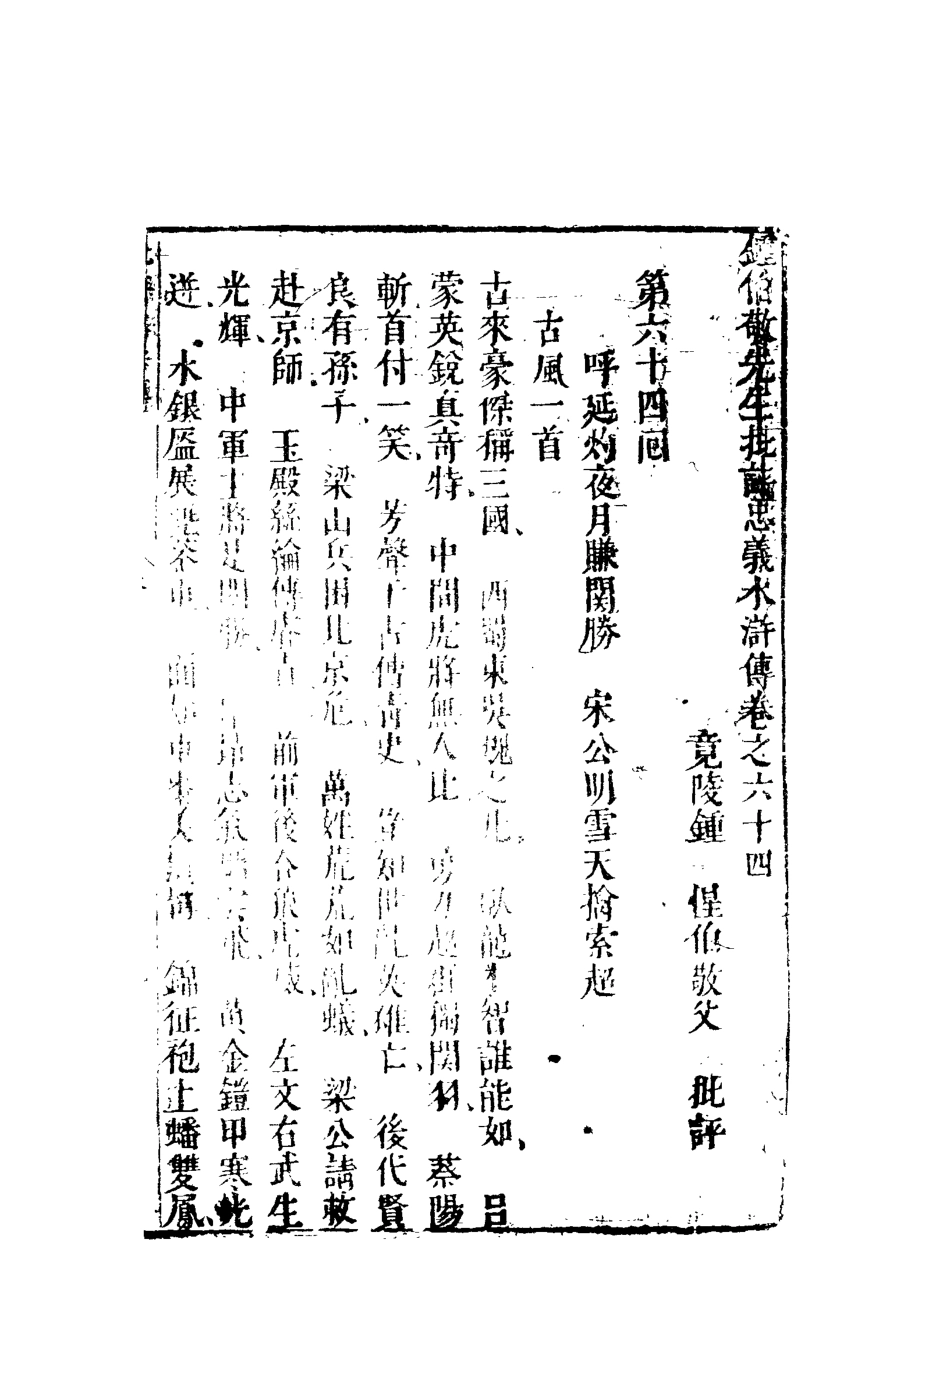 鍾伯敬先生批評忠義水滸傳卷之六十四
竟陵鍾 惺伯敬父 批評
第六十四囘
呼延灼夜月賺関勝 宋公明雪天擒索超
古風一首
古來豪傑稱三國、 西蜀東吳魏之北。 臥龍 智誰能如、 吕
蒙英銳真奇特、 中間虎將無人比 勇力超群獨関羽、 蔡陽
斬首付一笑、 芳聲千古傳青史、 豈知世亂英雄亡、 後代賢
良有孫子、 梁山兵困北京危、 萬姓荒荒如亂蟻、 梁公請救
赴京師 玉殿絲綸傳睿旨 前軍後合狼虎威、 左文右武生
光輝、 中軍主將是関勝、 昂昂志氣 黃金鎧甲寒光
逆、 水銀盔展 錦征袍上蟠雙鳳、